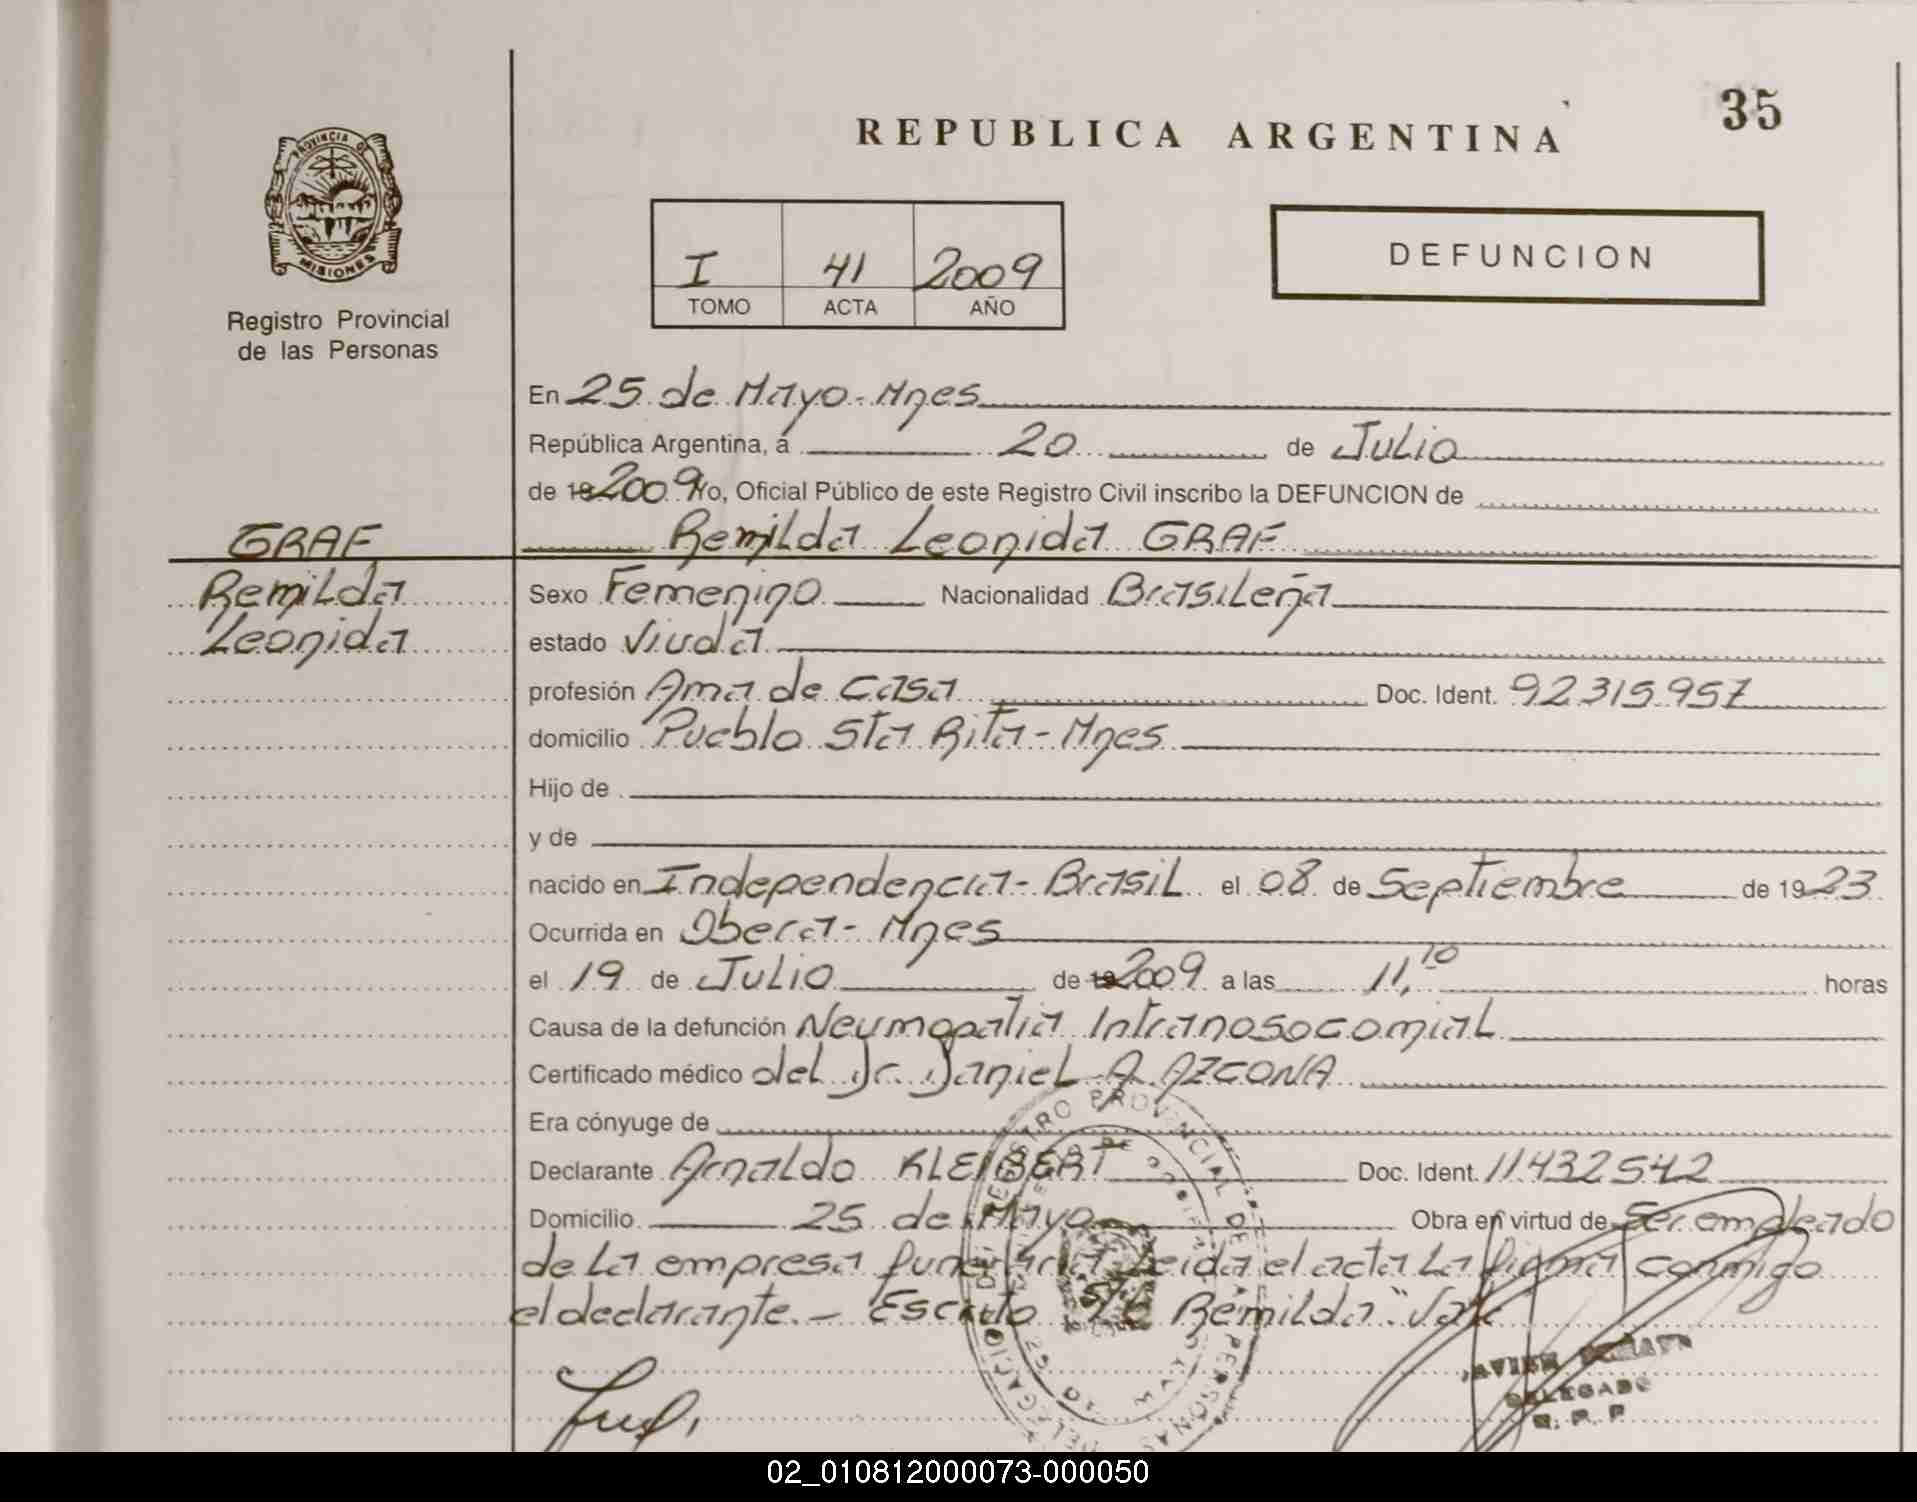 35
REPUBLICA ARGENTINA
PROVINCIA DE
MISIONES
Registro Provincial
de las Personas
I 41 2009
TOMO ACTA AÑO
DEFUNCION
En 25 de Mayo - Mnes
República Argentina, á 20 de Julio
de 19 2009 Yo, Oficial Público de este Registro Civil inscribo la DEFUNCION de
GRAF
Remilda Leonida GRAF
Remilda
Leonida
Sexo Femenino Nacionalidad Brasileña
estado Viuda
profesión Ama de Casa Doc. Ident. 92315957
domicilio Pueblo Sta Rita - Mnes
Hijo de
y de
nacido en Independencia - Brasil el 08 de Septiembre de 1923
Ocurrida en Obera - Mnes
el 19 de Julio de 19 2009 a las 11,10 horas
Causa de la defunción Neumopatia Intranosocomial
Certificado médico del Dr. Daniel A. AZCONA
Era cónyuge de
Declarante Arnaldo KLEIBERT Doc. Ident. 11432542
Domicilio 25 de Mayo Obra en virtud de Ser empleado
de La empresa funeraria Leida el acta La firma conmigo
el declarante. - Escrito S/R Remilda "Vale"
REGISTRO PROVINCIAL DE
PERSONAS
DELEGACION
25 MAYO
JAVIER
DELEGADO
R. P. P.
02_010812000073-000050